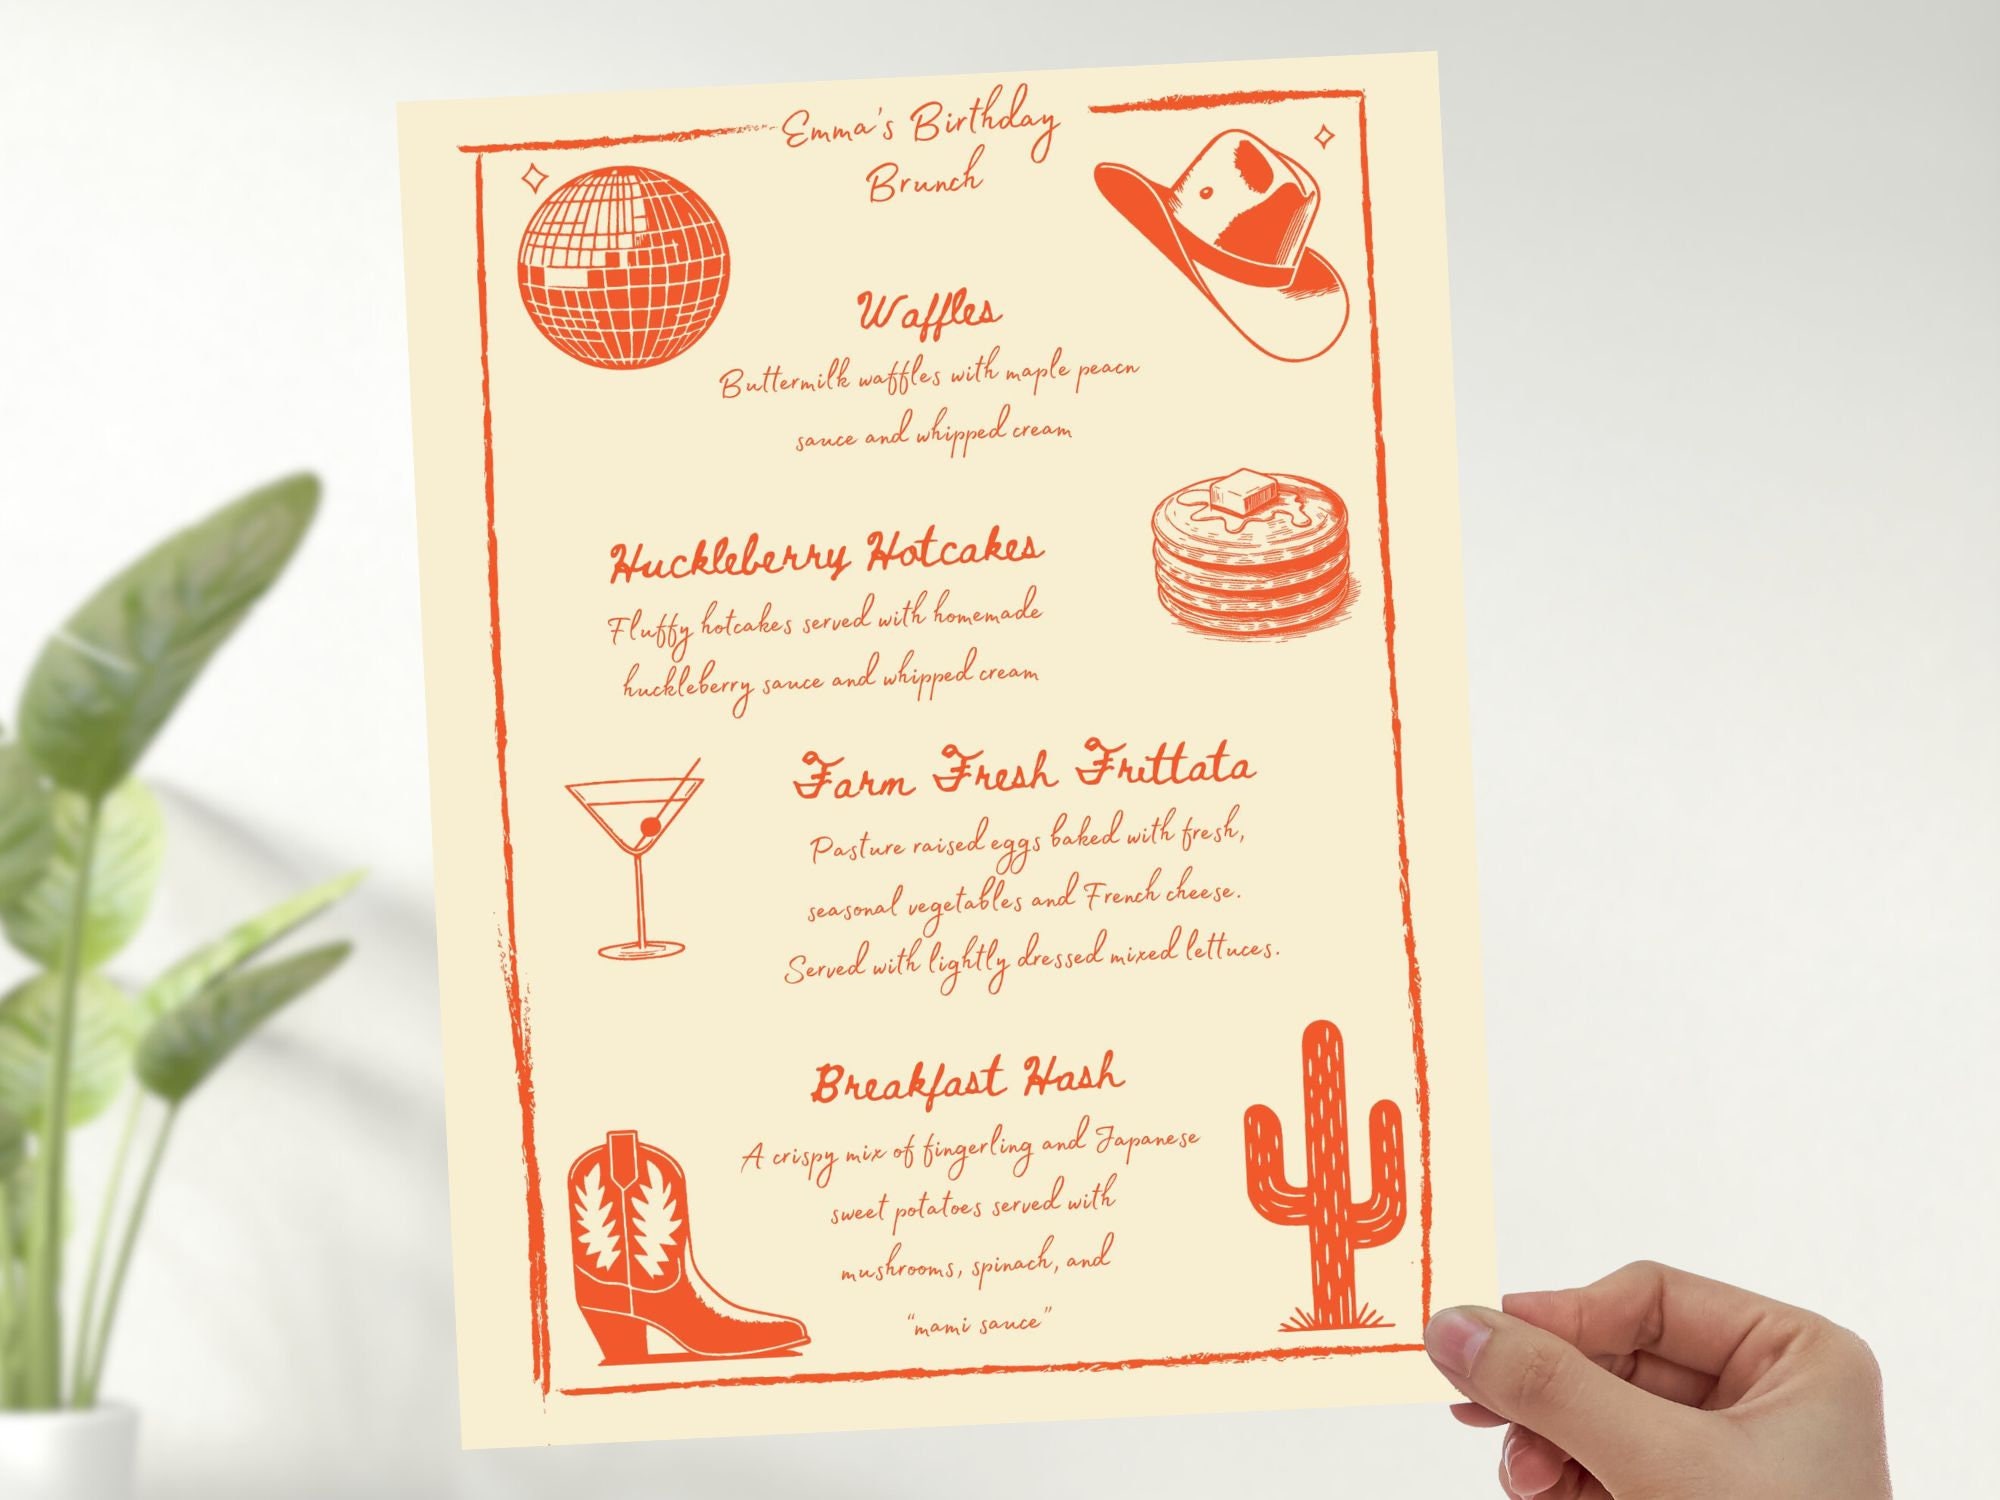 Emma's Birthday
Brunch
Waffles
Buttermilk waffles with maple peacn
sauce and whipped cream
Huckleberry Hotcakes
Fluffy hotcakes served with homemade
huckleberry sauce and whipped cream
Farm Fresh Frittata
Pasture raised eggs baked with fresh,
seasonal vegetables and French cheese.
Served with lightly dressed mixed lettuces.
Breakfast Hash
A crispy mix of fingerling and Japanese
sweet potatoes served with
mushrooms, spinach, and
“mami sauce”